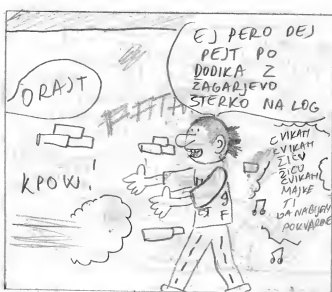 EJ PERO DEJ
PEJT PO
DODIKA Z
ZAGARJEVO
ŠTERKO NA LOG
ORAJT
KPOW!
CVIKAM
CVIKAM
ŽICU
ŽICU
CVIKAM
MAJKE
TI
DA NABIJEM
POKVARENE